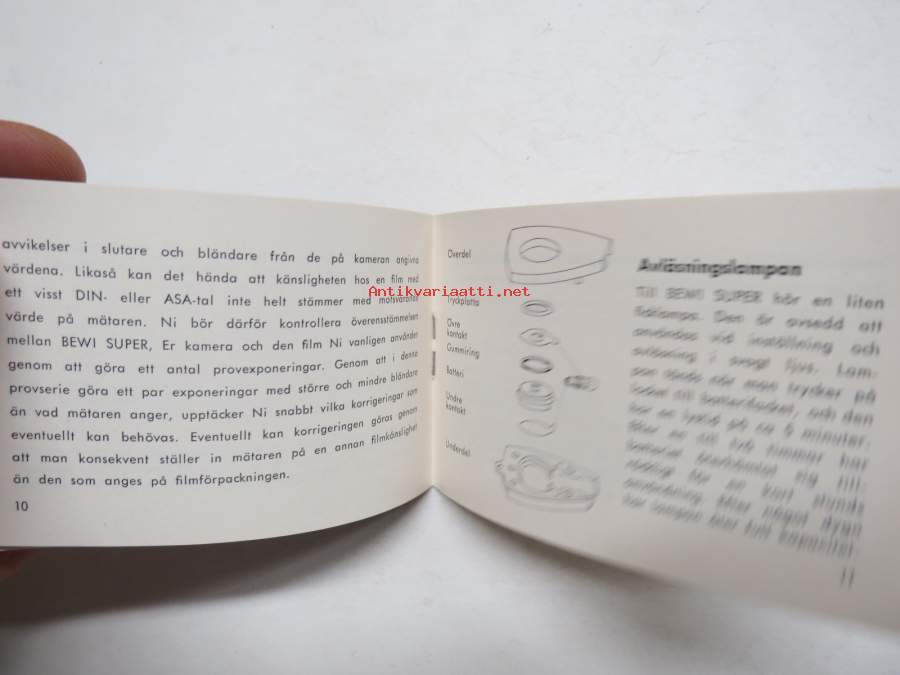 avvikelser i slutare och bländare från de på kameran angivna
värdena. Likaså kan det hända att känsligheten hos en film med
ett visst DIN- eller ASA-tal inte helt stämmer med motsvarande
värde på mätaren. Ni bör därför kontrollera överensstämmelsen
mellan BEWI SUPER, Er kamera och den film Ni vanligen använder
genom att göra ett antal provexponeringar. Genom att i denna
provserie göra ett par exponeringar med större och mindre bländare
än vad mätaren anger, upptäcker Ni snabbt vilka korrigeringar som
eventuellt kan behövas. Eventuellt kan korrigeringen göras genom
att man konsekvent ställer in mätaren på en annan filmkänslighet
än den som anges på filmförpackningen.
10
Antikvariaatti.net
Överdel
Tryckplatta
Övre
kontakt
Gummiring
Batteri
Undre
kontakt
Underdel
Avläsningslampan
Till BEWI SUPER hör en liten
ficklampa. Den är avsedd att
användas vid inställning och
avläsning i svagt ljus. Lam-
pan tänds när man trycker på
locket till batterifacket, och den
har en lystid på ca 6 minuter.
Efter en till två timmar har
batteriet återhämtat sig till-
räckligt för en kort stunds
användning. Efter något dygn
har lampan åter full kapacitet.
11